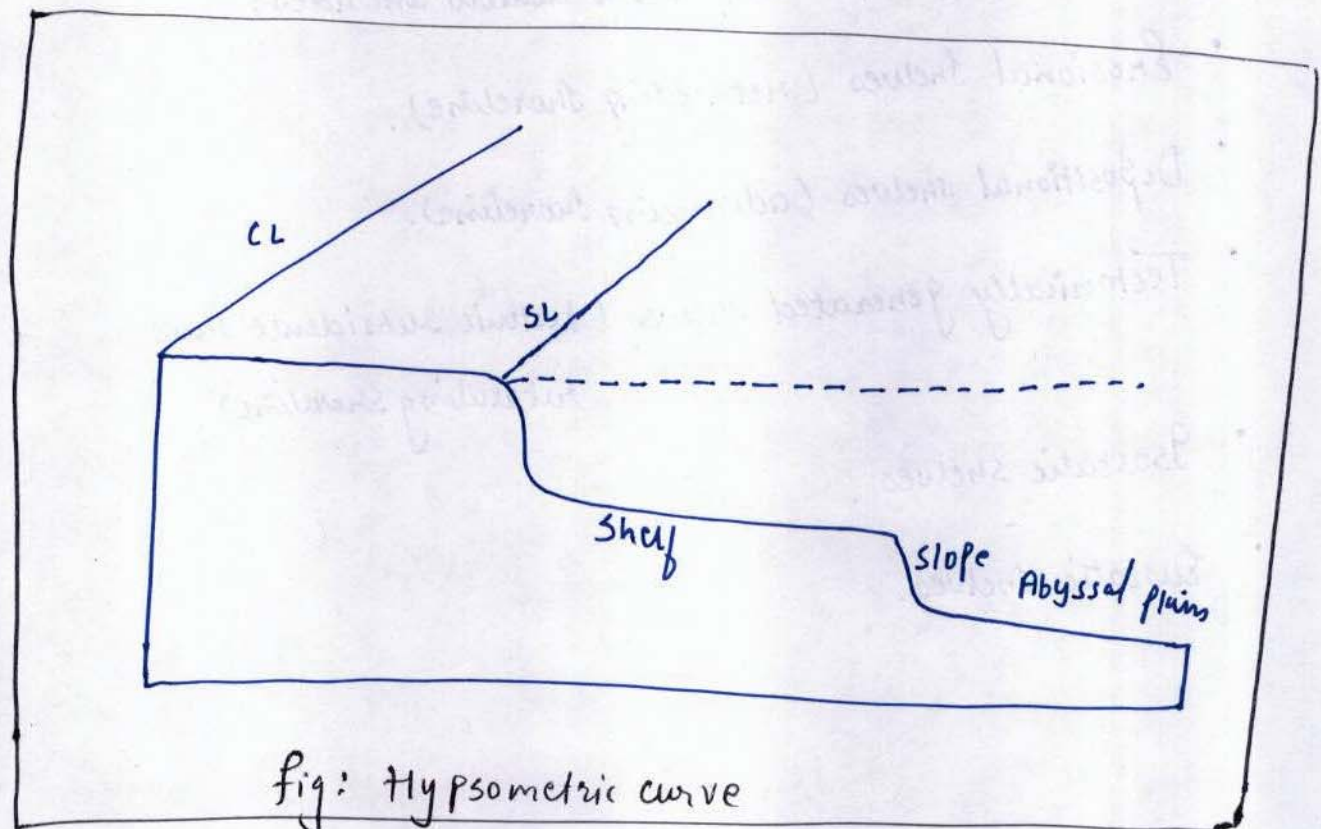 CL
SL
Shelf
Slope
Abyssal plains
fig: Hypsometric curve